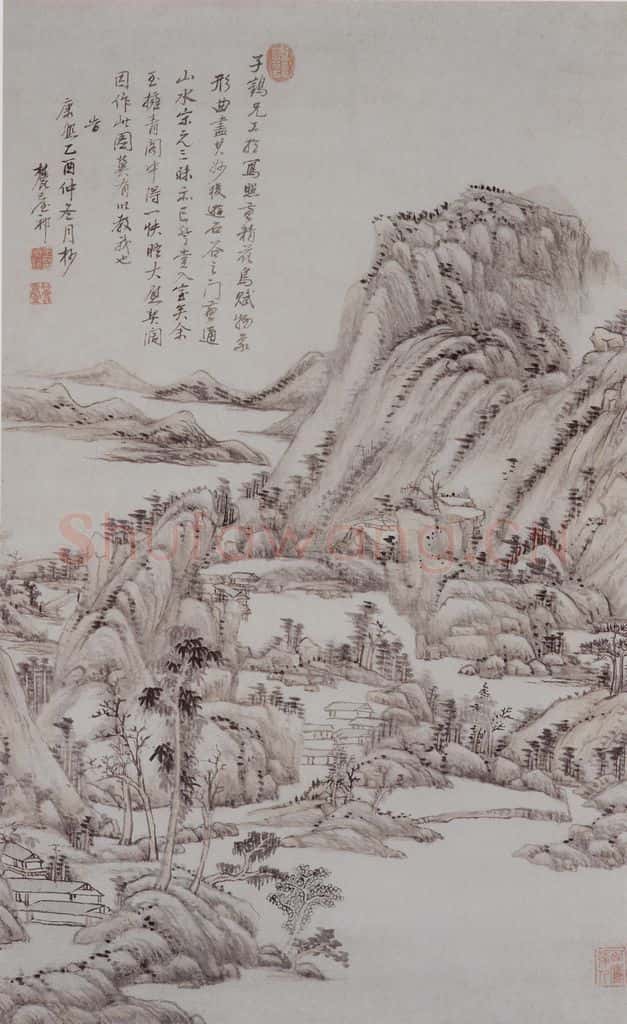 子鶴兄工於寫照兼精花鳥賦物象
形曲盡其妙後遊石谷之門兼通
山水宋元三昧亦已升堂入室矣余
至擁青閣中得一快晤大慰契闊
因作此圖冀有以教我也
旹
康熙乙酉仲冬月杪
麓臺祁
Shufawang.cn